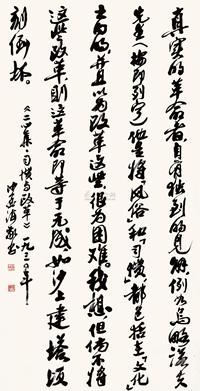 真实的革命者，自有独到的见解，例如乌略诺夫
先生（按即列宁）他是将“风俗”和“习惯”都包括在“文化”
之内的，并且以为改革这些，很为困难。我想，但倘不将
这些改革，则这革命即等于无成，如沙上建塔，顷
刻倒坏。
《二心集·习惯与改革》一九三〇年
敬书